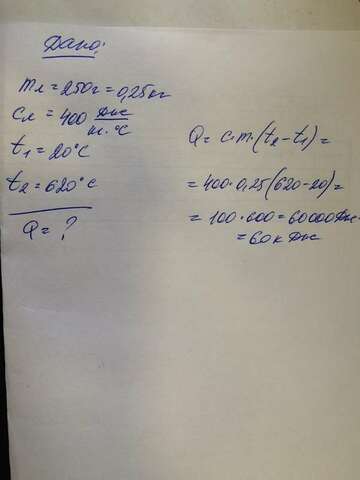 Дано:
mл = 250г = 0,25кг
cл = 400 Дж/кг·°C
t₁ = 20°C
t₂ = 620°C
Q = ?
Q = c·m·(t₂ - t₁) =
= 400·0,25(620-20) =
= 100·600 = 60000Дж
= 60кДж